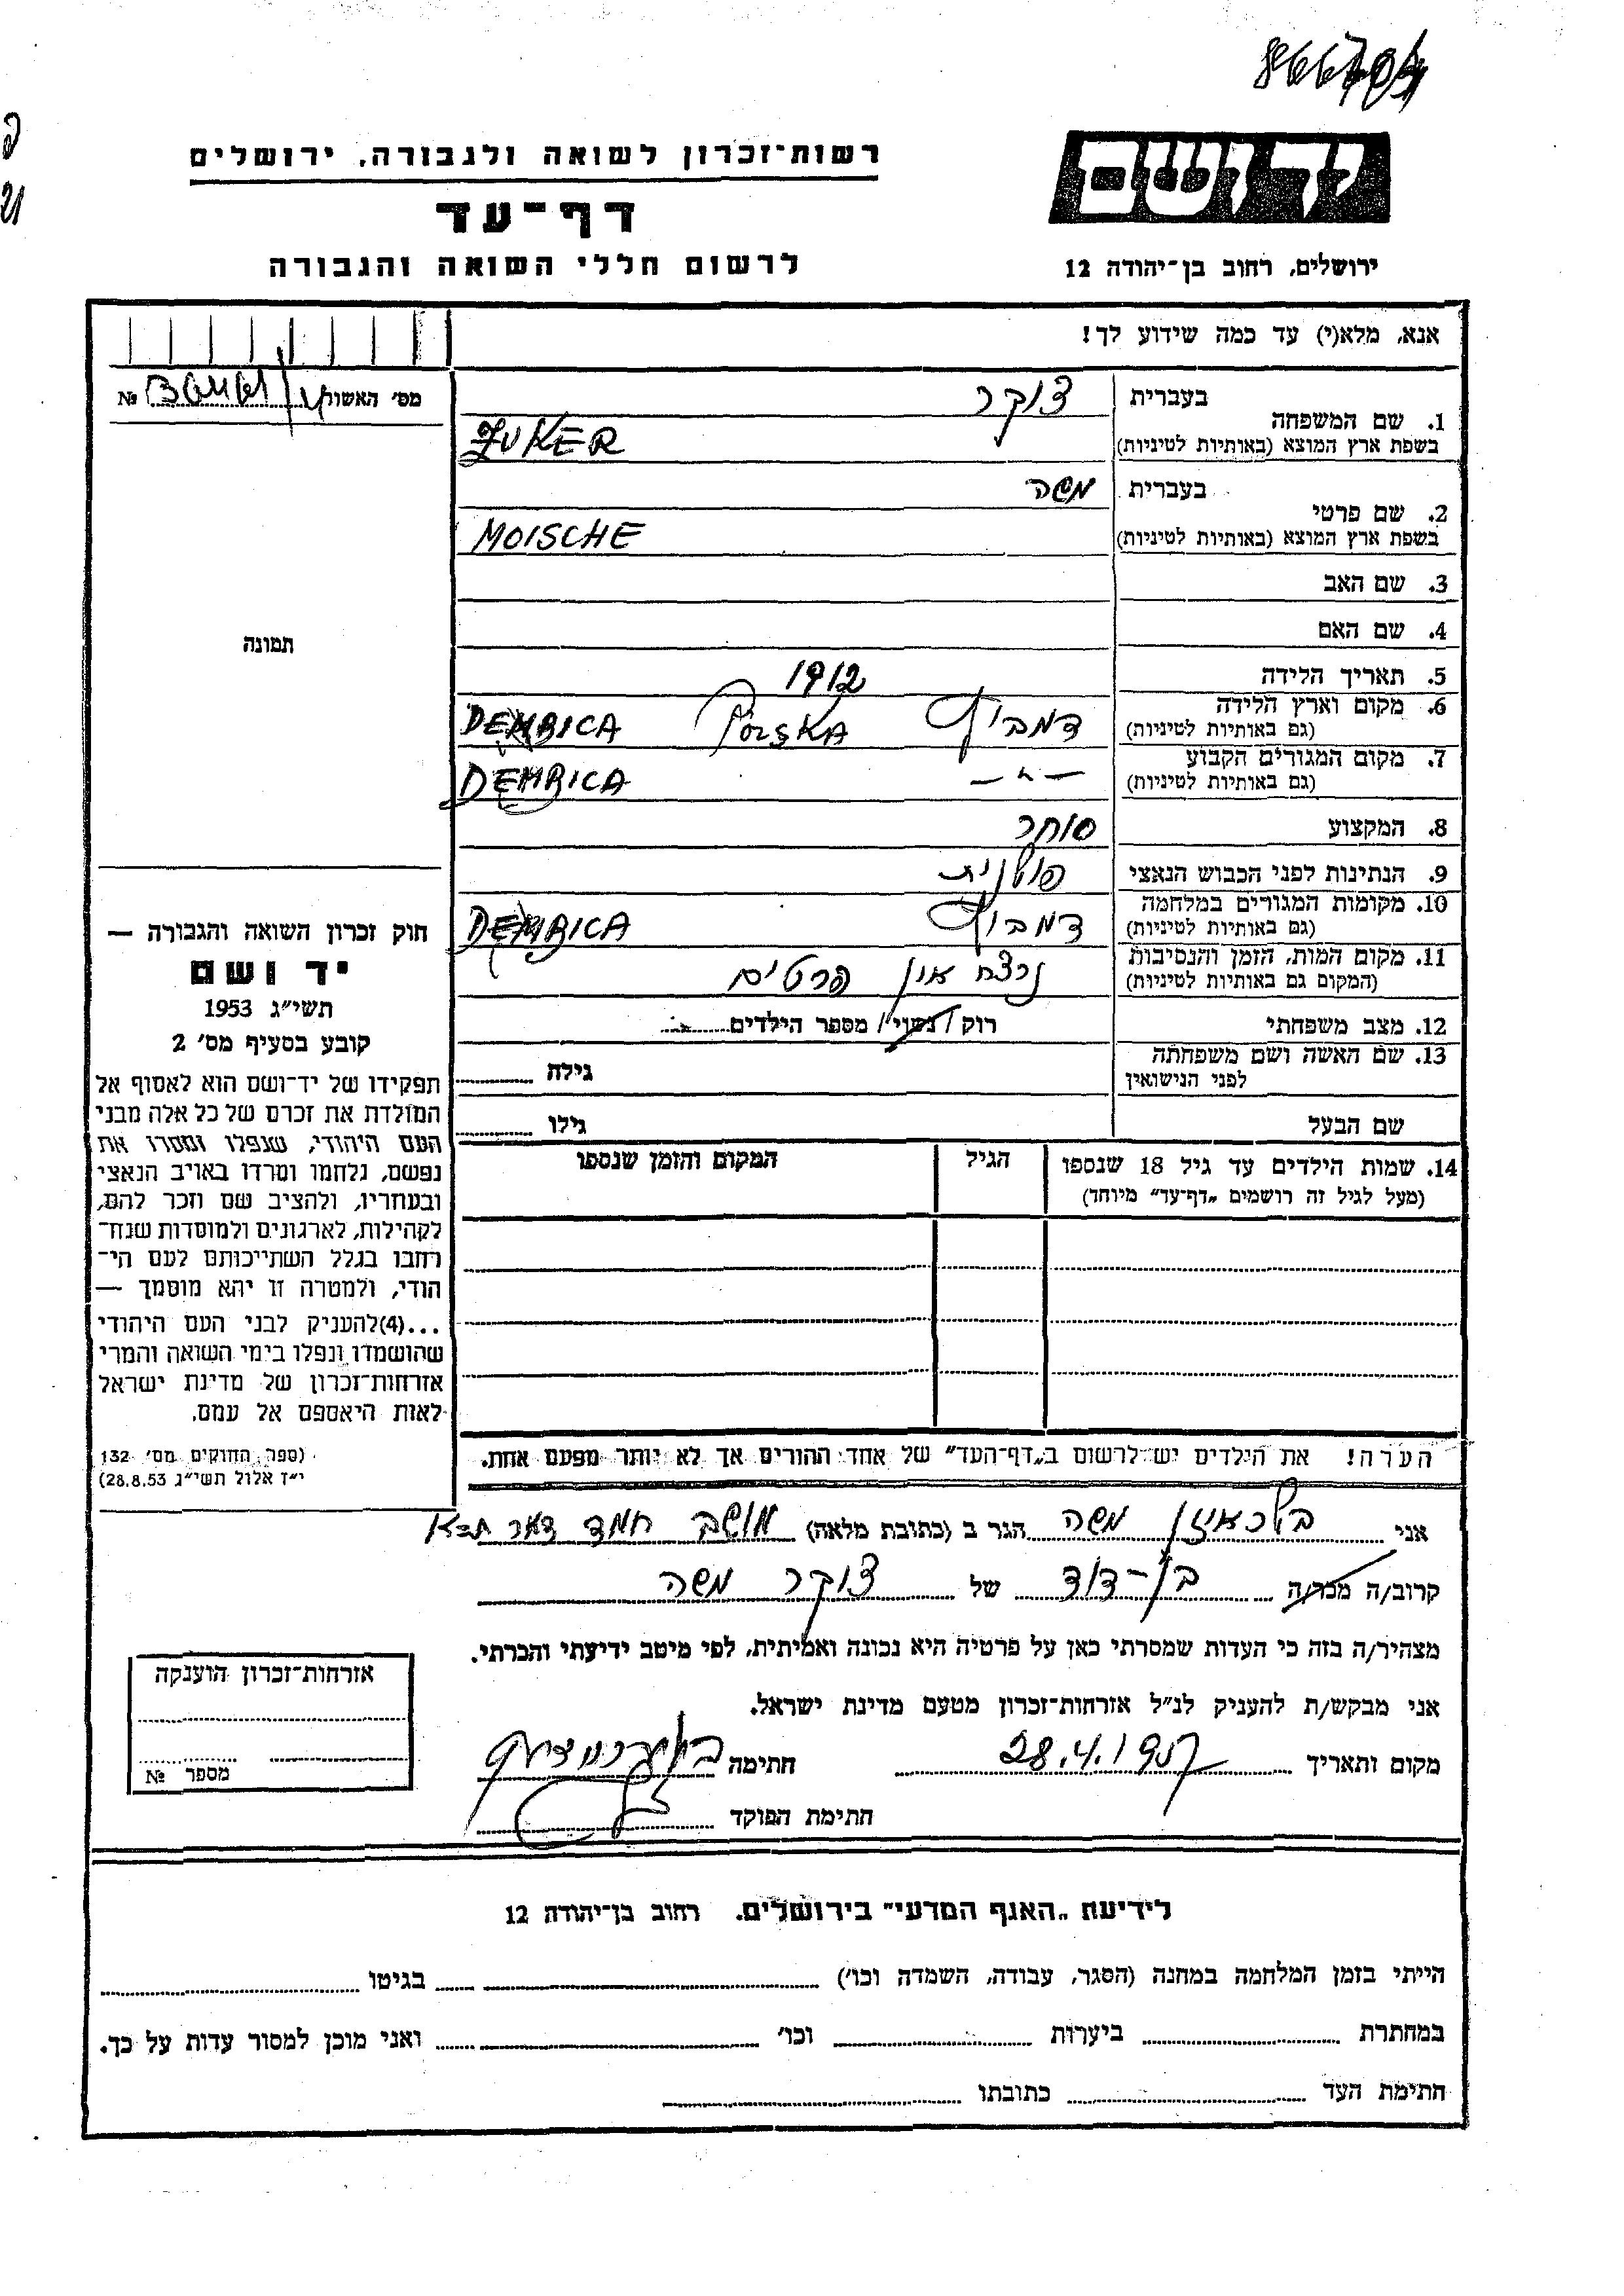 רשות-זכרון לשואה ולגבורה, ירושלים
דף-עד
לרשום חללי השואה והגבורה
יד ושם
ירושלים, רחוב בן-יהודה 12
אנא, מלא(י) עד כמה שידוע לך!
מס' האשור №
1. שם המשפחה
בעברית צוקר
בשפת ארץ המוצא (באותיות לטיניות) ZUKER
2. שם פרטי
בעברית משה
בשפת ארץ המוצא (באותיות לטיניות) MOISCHE
3. שם האב
4. שם האם
תמונה
5. תאריך הלידה 1912
6. מקום וארץ הלידה
(גם באותיות לטיניות) דמביץ POLSKA DEMBICA
7. מקום המגורים הקבוע
(גם באותיות לטיניות) — " — DEMBICA
8. המקצוע סוחר
9. הנתינות לפני הכבוש הנאצי פולנית
10. מקומות המגורים במלחמה
(גם באותיות לטיניות) דמביץ DEMBICA
11. מקום המות, הזמן והנסיבות
(המקום גם באותיות לטיניות) נרצח אין פרטים
12. מצב משפחתי רוק / נשוי / מספר הילדים
13. שם האשה ושם משפחתה
לפני הנישואין גילה
שם הבעל גילו
14. שמות הילדים עד גיל 18 שנספו
(מעל לגיל זה רושמים „דף-עד" מיוחד)
הגיל
המקום והזמן שנספו
חוק זכרון השואה והגבורה —
יד ושם
תשי"ג 1953
קובע בסעיף מס' 2
תפקידו של יד-ושם הוא לאסוף אל
המולדת את זכרם של כל אלה מבני
העם היהודי, שנפלו ומסרו את
נפשם, נלחמו ומרדו באויב הנאצי
ובעוזריו, ולהציב שם וזכר להם,
לקהילות, לארגונים ולמוסדות שנח-
רבו בגלל השתייכותם לעם הי-
הודי, ולמטרה זו יהא מוסמך —
...(4) להעניק לבני העם היהודי
שהושמדו ונפלו בימי השואה והמרי
אזרחות-זכרון של מדינת ישראל
לאות היאספם אל עמם.
(ספר החוקים מס' 132
י"ז אלול תשי"ג 28.8.53)
הערה! את הילדים יש לרשום ב„דף-העד" של אחד ההורים אך לא יותר מפעם אחת.
אני משה הגר ב (כתובת מלאה) מושב חמד דאר
קרוב/ה מכר/ה בן-דוד של צוקר משה
מצהיר/ה בזה כי העדות שמסרתי כאן על פרטיה היא נכונה ואמיתית, לפי מיטב ידיעתי והכרתי.
אני מבקש/ת להעניק לנ"ל אזרחות-זכרון מטעם מדינת ישראל.
מקום ותאריך 28.4.1957 חתימה
חתימת הפוקד
אזרחות-זכרון הוענקה
מספר №
לידיעת „האגף המדעי" בירושלים. רחוב בן-יהודה 12
הייתי בזמן המלחמה במחנה (הסגר, עבודה, השמדה וכו') בגיטו
במחתרת ביערות וכו' ואני מוכן למסור עדות על כך.
חתימת העד כתובתו